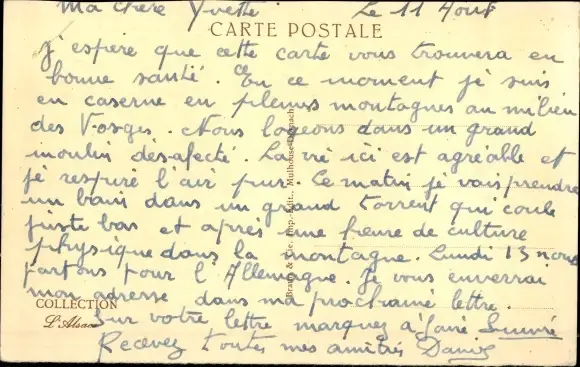 Ma chère Yvette Le 11 Aout
CARTE POSTALE
j'espère que cette carte vous trouvera en
bonne santé. En ce moment je suis
en caserne en pleines montagnes au milieu
des Vosges. Nous logeons dans un grand
moulin désafecté. La vie ici est agréable et
je respire l'air pur. Ce matin je vais prendre
un bain dans un grand torrent qui coule
juste bas et après une heure de culture
physique dans la montagne. Lundi 13 nous
partons pour l'Allemagne. Je vous enverrai
mon adresse dans ma prochaine lettre.
COLLECTION
L'Alsace
Sur votre lettre marquez à faire suivre
Recevez toutes mes amitiés
Braun & Cie, Imp.-Édit., Mulhouse-Dornach